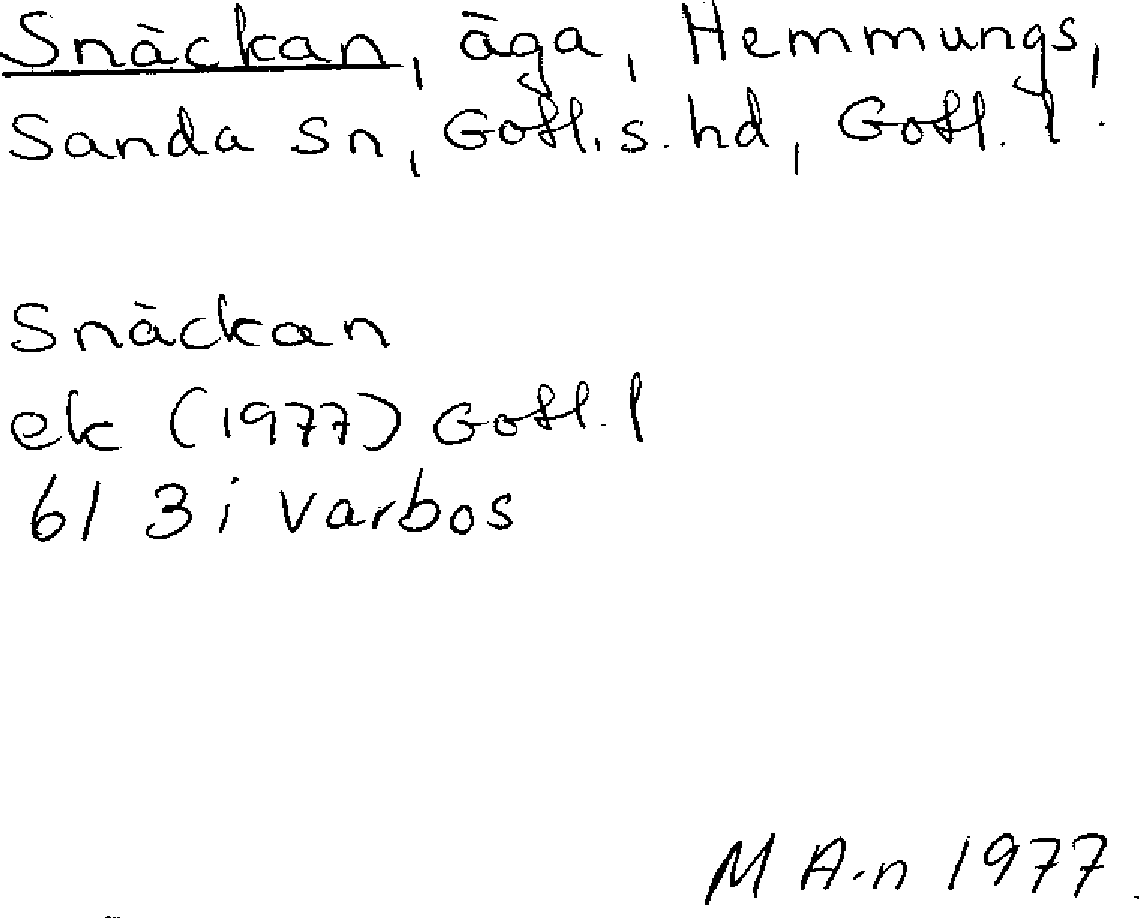 Snäckan, äga, Hemmungs,
Sanda sn, Gotl. s. hd, Gotl. l.
Snäckan
ek (1977) Gotl. l
6I 3i Varbos
M A-n 1977